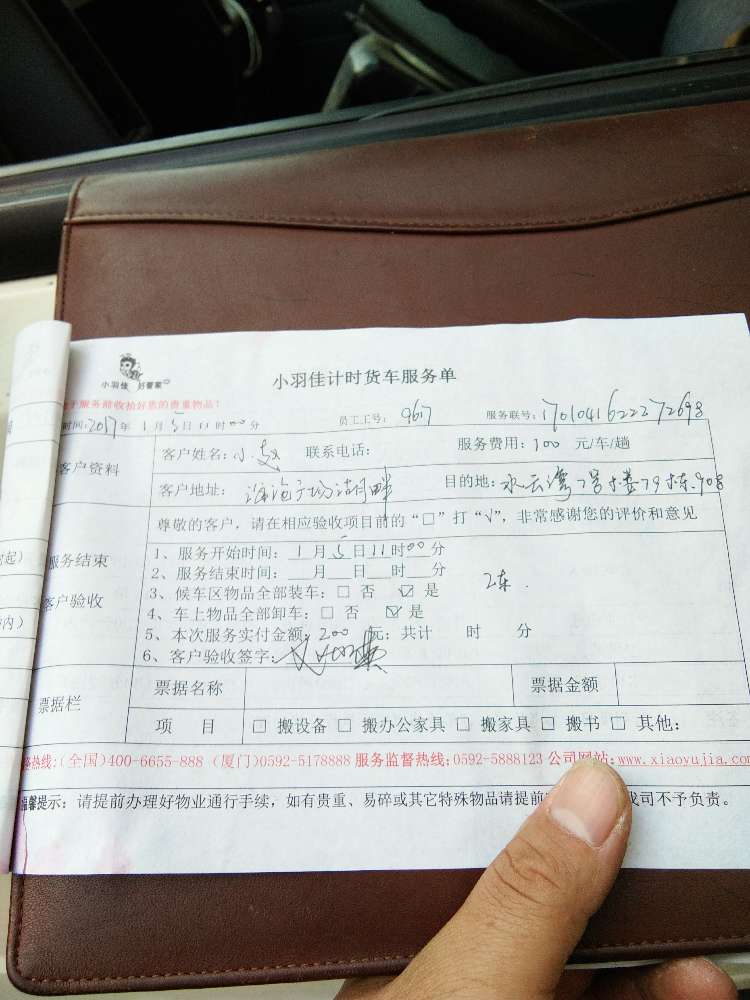 小羽佳 好管家
小羽佳计时货车服务单
服务前收拾好您的贵重物品！
时间:2017年1月5日11时00分 员工工号: 9617 服务联号:170104162227269
客户资料
客户姓名: 小 联系电话: 服务费用: 100 元/车/趟
客户地址: 广场湖畔 目的地: 水云湾 号楼 栋 908
尊敬的客户，请在相应验收项目前的“□”打“√”，非常感谢您的评价和意见
起）
服务结束
客户验收
内）
1、服务开始时间: 1月5日11时00分
2、服务结束时间:___月___日___时___分
3、候车区物品全部装车: □ 否 ☑ 是 2车.
4、车上物品全部卸车: □ 否 ☑ 是
5、本次服务实付金额: 200 元; 共计 时 分
6、客户验收签字:
票据栏
票据名称 票据金额
项 目 □ 搬设备 □ 搬办公家具 □ 搬家具 □ 搬书 □ 其他:
热线:(全国)400-6655-888 (厦门)0592-5178888 服务监督热线:0592-5888123 公司网站:www.xiaoyujia.com
温馨提示: 请提前办理好物业通行手续，如有贵重、易碎或其它特殊物品请提前 我司不予负责。